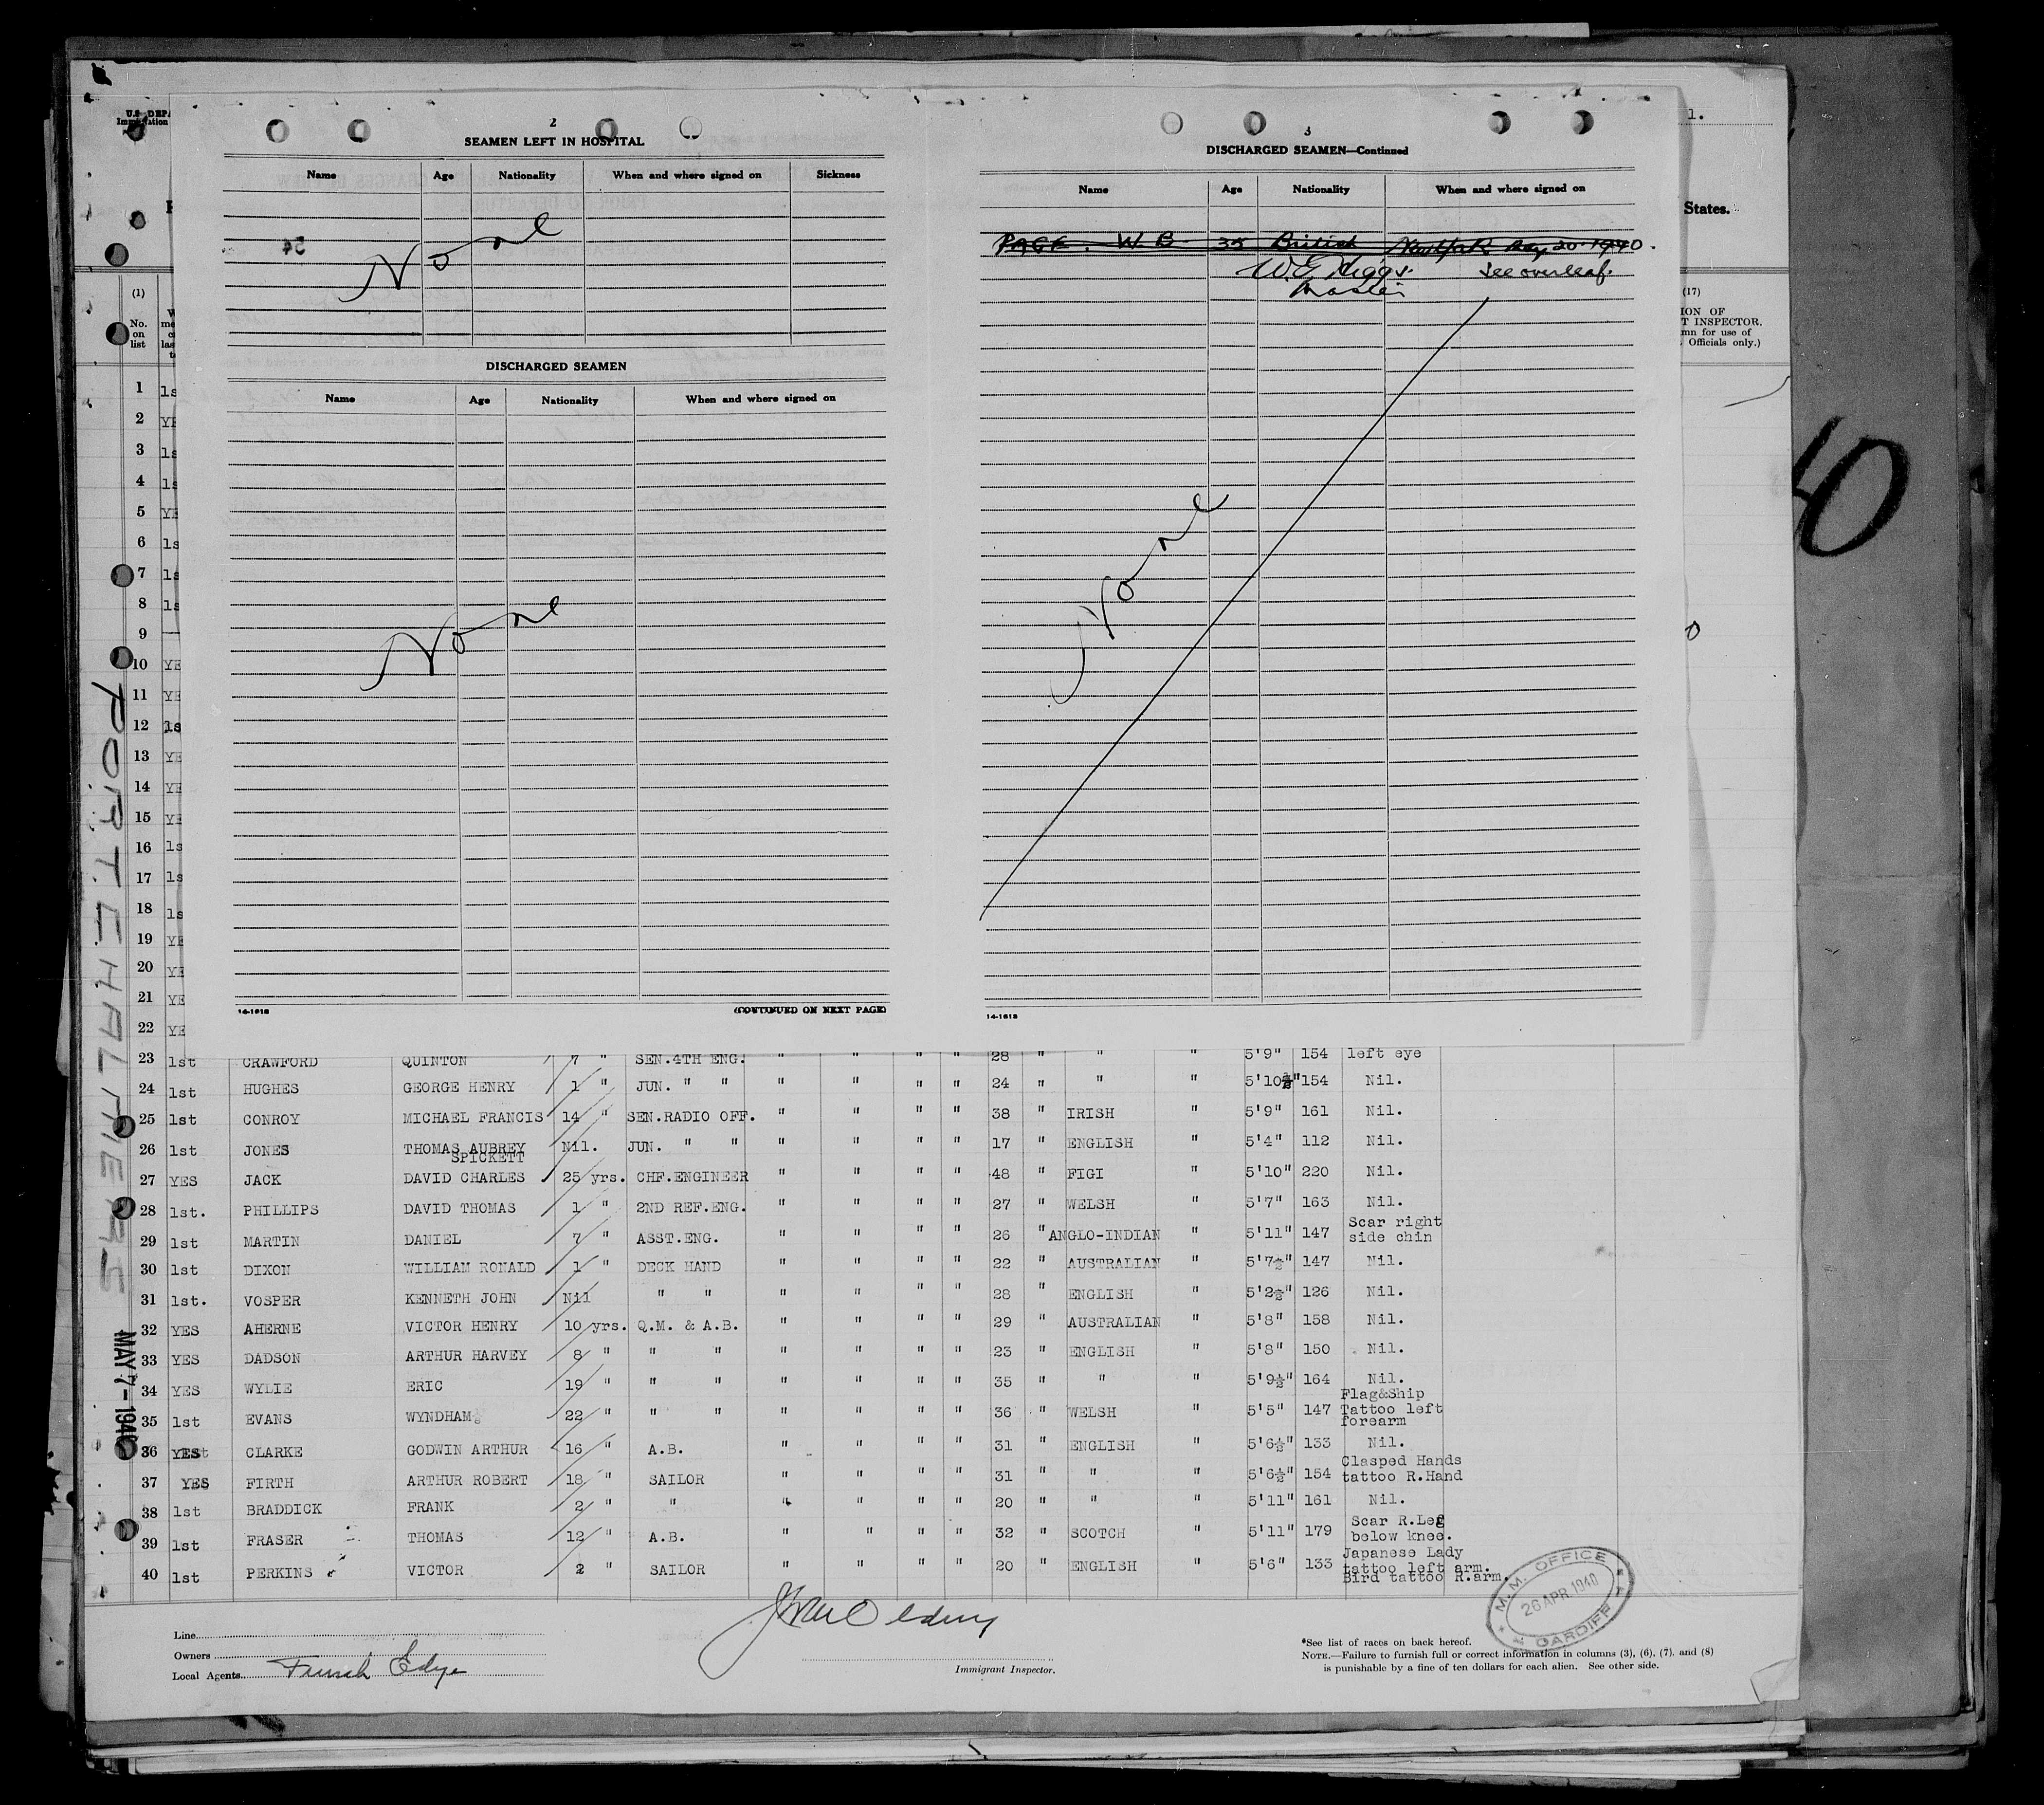 U.S. DEPA
Immigration
1.
States.
2
SEAMEN LEFT IN HOSPITAL
Name Age Nationality When and where signed on Sickness
None
DISCHARGED SEAMEN
Name Age Nationality When and where signed on
None
14-1618
(CONTINUED ON NEXT PAGE)
3
DISCHARGED SEAMEN—Continued
Name Age Nationality When and where signed on
PAGE. W. B. 35 British New York May 20 1940.
W.G. Higgs. See overleaf.
Master
None
14-1618
(1)
No.
on
list
(17)
ION OF
T INSPECTOR.
mn for use of
Officials only.)
1 1s
2 YE
3 1s
4 1s
5 YE
6 1s
7 1s
8 1s
9
10 YE
11 YE
12 1s
13 YE
14 YE
15 YE
16 1s
17 1s
18 1s
19 YE
20 YE
21 YE
22 YE
23 1st CRAWFORD QUINTON 7 " SEN.4TH ENG. " " " " 28 " " " 5'9" 154 left eye
24 1st HUGHES GEORGE HENRY 1 " JUN. " " " " " " 24 " " " 5'10½" 154 Nil.
25 1st CONROY MICHAEL FRANCIS 14 " SEN.RADIO OFF. " " " " 38 " IRISH " 5'9" 161 Nil.
26 1st JONES THOMAS AUBREY SPICKETT Nil. JUN. " " " " " " 17 " ENGLISH " 5'4" 112 Nil.
27 YES JACK DAVID CHARLES 25 yrs. CHF.ENGINEER " " " " 48 " FIGI " 5'10" 220 Nil.
28 1st. PHILLIPS DAVID THOMAS 1 " 2ND REF.ENG. " " " " 27 " WELSH " 5'7" 163 Nil.
29 1st MARTIN DANIEL 7 " ASST.ENG. " " " " 26 " ANGLO-INDIAN " 5'11" 147 Scar right side chin
30 1st DIXON WILLIAM RONALD 1 " DECK HAND " " " " 22 " AUSTRALIAN " 5'7½" 147 Nil.
31 1st. VOSPER KENNETH JOHN Nil " " " " " " 28 " ENGLISH " 5'2½" 126 Nil.
32 YES AHERNE VICTOR HENRY 10 yrs. Q.M. & A.B. " " " " 29 " AUSTRALIAN " 5'8" 158 Nil.
33 YES DADSON ARTHUR HARVEY 8 " " " " " " " 23 " ENGLISH " 5'8" 150 Nil.
34 YES WYLIE ERIC 19 " " " " " " " 35 " " " 5'9½" 164 Nil.
35 1st EVANS WYNDHAM 22 " " " " " " " 36 " WELSH " 5'5" 147 Flag&Ship Tattoo left forearm
36 YES CLARKE GODWIN ARTHUR 16 " A.B. " " " " 31 " ENGLISH " 5'6½" 133 Nil.
37 YES FIRTH ARTHUR ROBERT 18 " SAILOR " " " " 31 " " " 5'6½" 154 Clasped Hands tattoo R.Hand
38 1st BRADDICK FRANK 2 " " " " " " 20 " " " 5'11" 161 Nil.
39 1st FRASER THOMAS 12 " A.B. " " " " 32 " SCOTCH " 5'11" 179 Scar R.Leg below knee.
40 1st PERKINS VICTOR 2 " SAILOR " " " " 20 " ENGLISH " 5'6" 133 Japanese Lady tattoo left arm. Bird tattoo R.arm.
PORT CHALMERS
MAY 7 - 1940
40
M.M. OFFICE
26 APR 1940
CARDIFF
Line
Owners
Local Agents
Immigrant Inspector.
*See list of races on back hereof.
NOTE.—Failure to furnish full or correct information in columns (3), (6), (7), and (8)
is punishable by a fine of ten dollars for each alien. See other side.